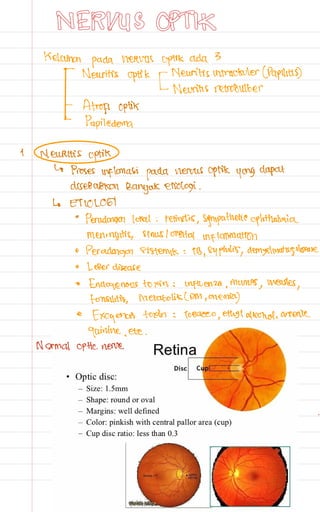 NERVUS OPTIK
Kelainan pada nervus optik ada 3
Neuritis optik
Neuritis intraokuler (Papilitis)
Neuritis retrobulber
Atrofi optik
Papiledema
1 Neuritis optik
Proses inflamasi pada nervus optik yang dapat
disebabkan banyak etiologi.
ETIOLOGI
• Peradangan lokal : retinitis, sympathetic ophthalmia,
meningitis, sinus / orbital inflammation
• Peradangan sistemik : TB, Syphilis,
• Leber disease
• Endogenous toxin : influenza, mumps, measles,
tonsilitis, metabolik (DM,
• Exogenous toxin : tobacco, ethyl alkohol, arsenic
quinine, etc.
Normal optic nerve
Retina
Disc Cup
• Optic disc:
– Size: 1.5mm
– Shape: round or oval
– Margins: well defined
– Color: pinkish with central pallor area (cup)
– Cup disc ratio: less than 0.3